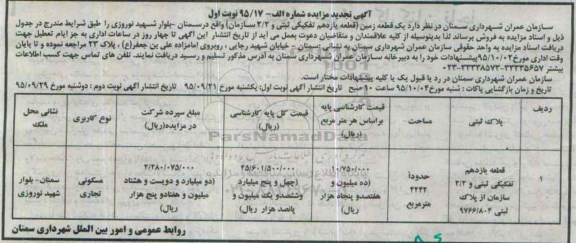 آگهی تجدید مزایده شماره الف - ۹۵/۱۷ نوبت اول
سازمان عمران شهرداری سمنان در نظر دارد یک قطعه زمین (قطعه یازدهم تفکیکی ثبتی و ۳/۲ سازمان) واقع در سمنان - بلوار شهید نوروزی را طبق شرایط مندرج در جدول
ذیل و اسناد مزایده به فروش برساند لذا بدینوسیله از کلیه علاقمندان و متقاضیان دعوت بعمل می آید از تاریخ انتشار این آگهی تا چهار روز در ساعات اداری به جز ایام تعطیل جهت
دریافت اسناد مزایده به واحد حقوقی سازمان عمران شهرداری سمنان به نشانی: سمنان - خیابان شهید رجایی ، روبروی امامزاده علی بن جعفر(ع) ، پلاک ۲۳ مراجعه نموده و تا پایان
وقت اداری مورخ ۹۵/۱۰/۰۲ پیشنهادات خود را به دبیرخانه سازمان عمران شهرداری سمنان به آدرس مذکور تسلیم و رسید دریافت نمایند. تلفن های تماس جهت کسب اطلاعات
بیشتر ۳۳۳۳۵۶۵۷-۳۳۳۳۸۵۷۳-۰۲۳
سازمان عمران شهرداری سمنان در رد یا قبول یک یا کلیه پیشنهادات مختار است.
تاریخ و زمان بازگشایی پاکات : شنبه مورخ ۹۵/۱۰/۰۴ ساعت ۱۰ صبح تاریخ انتشار آگهی نوبت اول: یکشنبه مورخ ۹۵/۰۹/۲۱ تاریخ انتشار آگهی نوبت دوم: دوشنبه مورخ ۹۵/۰۹/۲۹
ردیف
پلاک ثبتی
مساحت
قیمت کارشناسی پایه براساس هر متر مربع (ریال)
قیمت کل پایه کارشناسی (ریال)
مبلغ سپرده شرکت در مزایده(ریال)
نوع کاربری
نشانی محل ملک
۱
قطعه یازدهم تفکیکی ثبتی و ۳/۲ سازمان از پلاک ثبتی ۹۷۶۶/۸۰۴
حدوداً ۴۲۴۲ مترمربع
۱۰/۷۵۰/۰۰۰ (ده میلیون و هفتصدو پنجاه هزار ریال)
۴۵/۶۰۱/۵۰۰/۰۰۰ (چهل و پنج میلیارد وششصدو یک میلیون و پانصد هزار ریال)
۲/۲۸۰/۰۷۵/۰۰۰ (دو میلیارد و دویست و هشتاد میلیون و هفتادو پنج هزار ریال)
مسکونی تجاری
سمنان- بلوار شهید نوروزی
روابط عمومی و امور بین الملل شهرداری سمنان
ParsNamadData